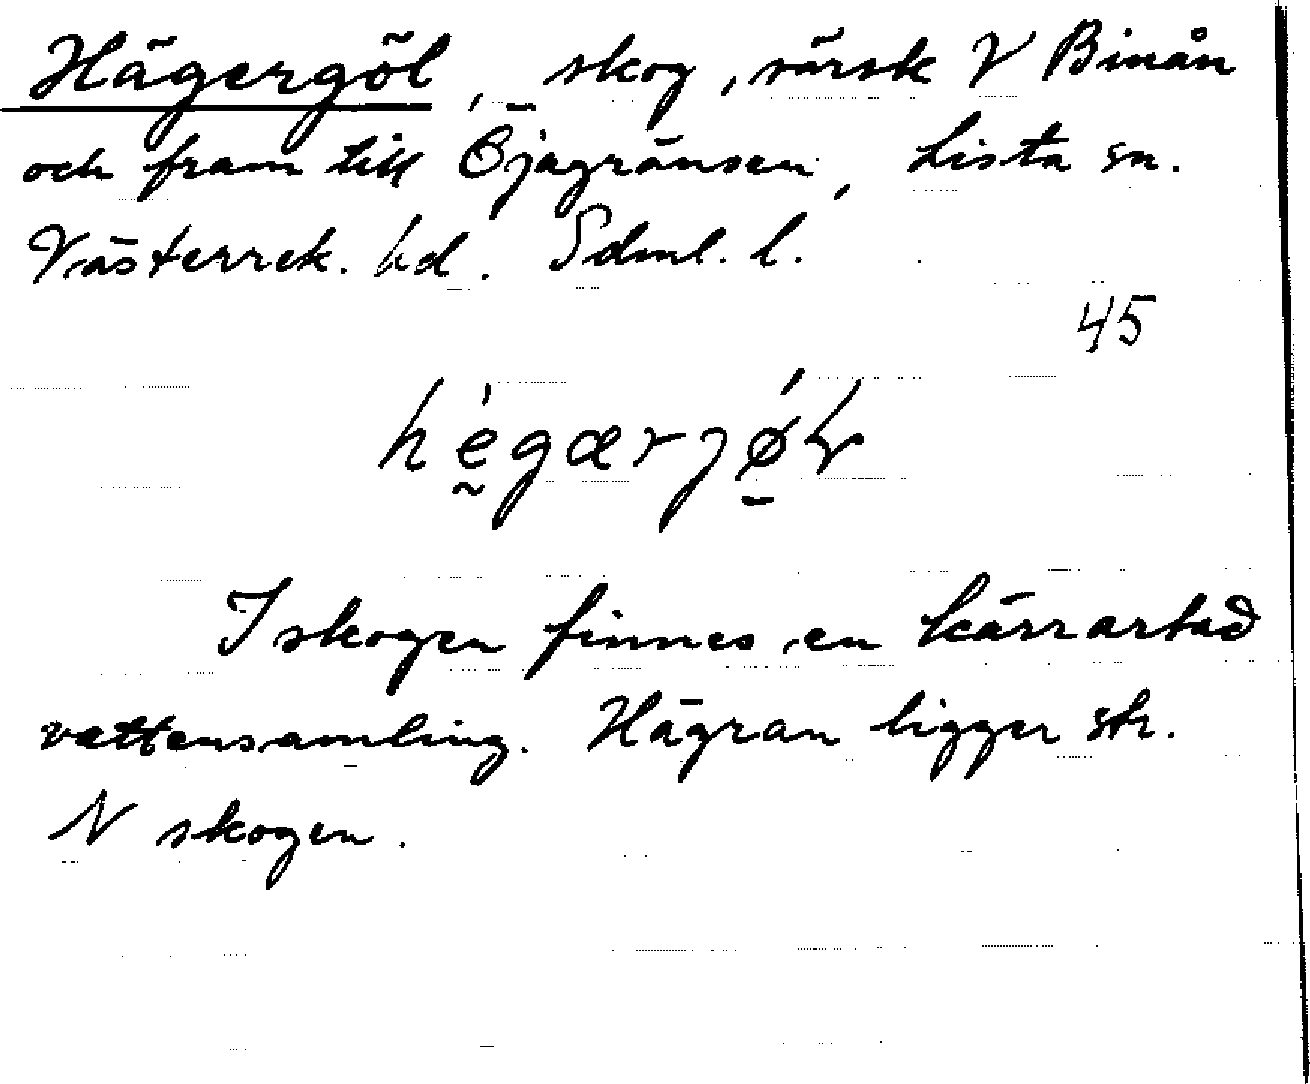 Hägergöl, skog, särsk V Binån
och fram till Öjagränsen, Lista sn.
Västerrek. hd. Sdml. l.
45
I skogen finnes en kärrartad
vattensamling. Hägran ligger str.
N skogen.